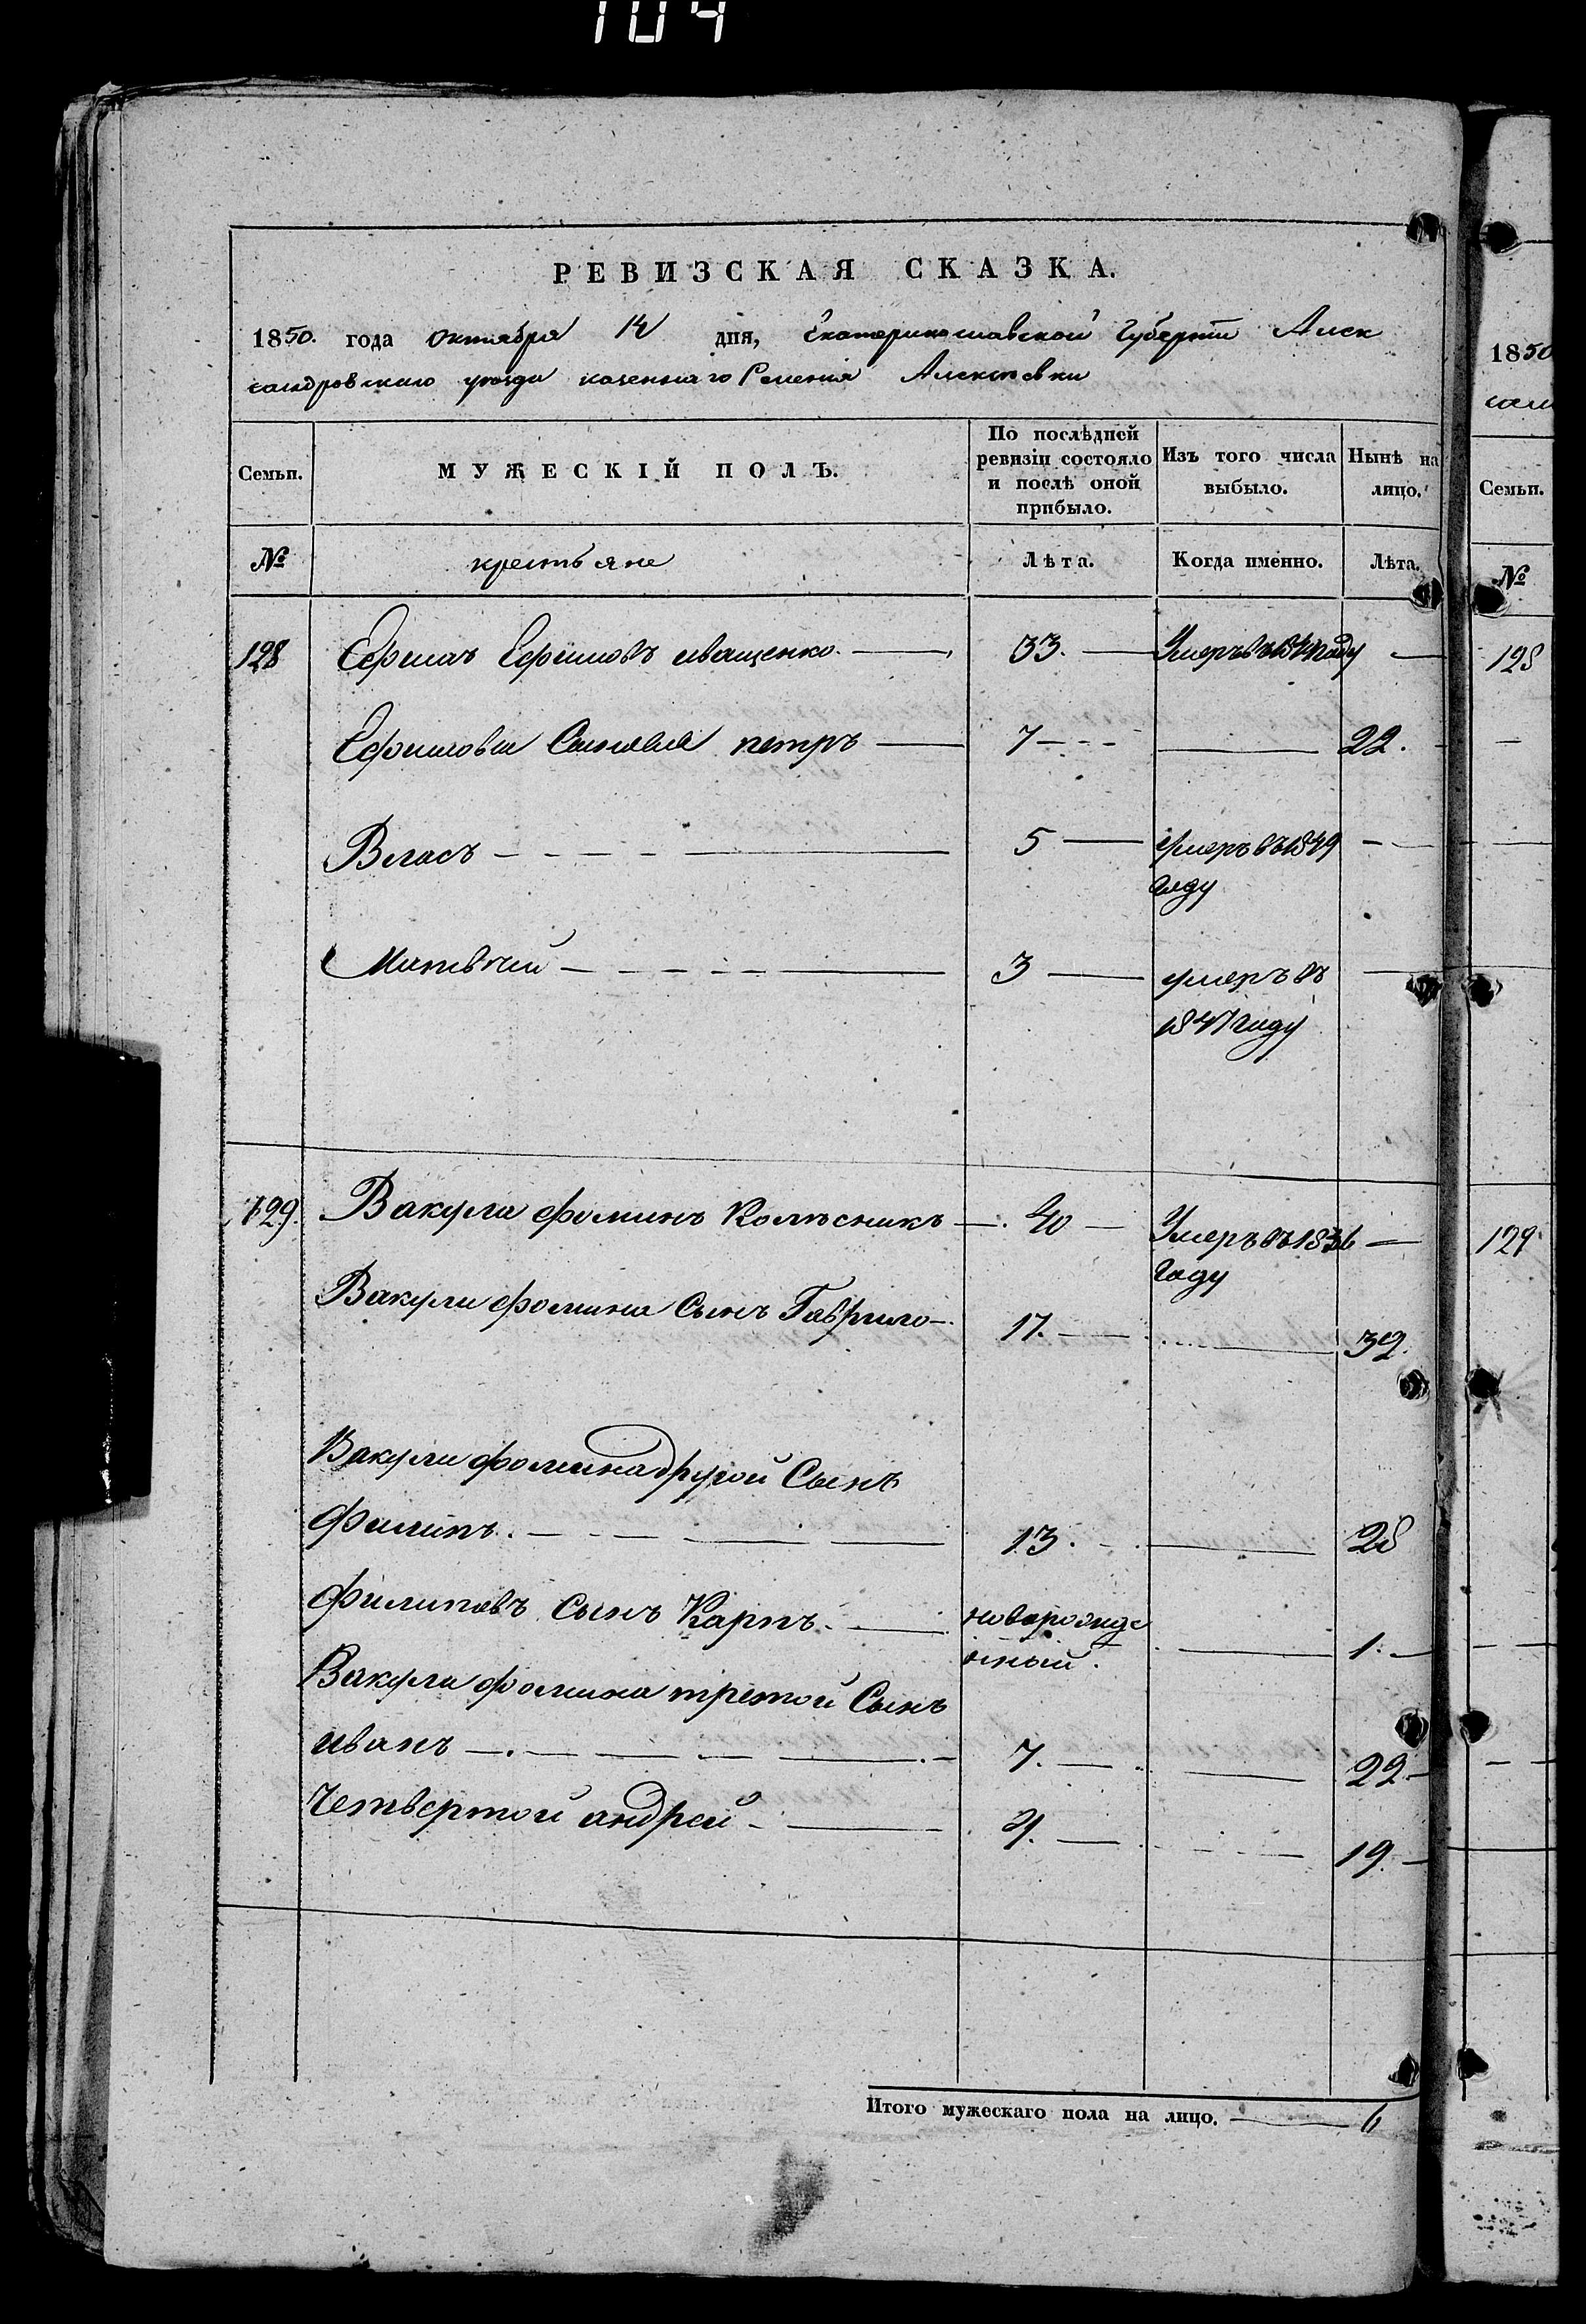 104
РЕВИЗСКАЯ СКАЗКА.
1850. года октября 14 дня, Екатеринославской Губернїи Алек
сандровскаго уезда казеннаго Селенїя Алексѣевки
Семьи. МУЖЕСКІЙ ПОЛЪ. По послѣдней ревизіи состояло и послѣ оной прибыло. Изъ того числа выбыло. Нынѣ на лицо.
№ крестьяне Лѣта. Когда именно. Лѣта.
128 Ефимъ Ефимовъ иващенко 33. Умеръ въ году
Ефимовы Сыновья петръ 7 22.
Власъ 5 умеръ въ 1849
году
Матвѣй 3 умеръ въ
1847 году
129. Вакула фоминъ Колѣсникъ 40 Умеръ въ 1836
году
Вакулы фомина Сынъ Гаврило 17. 32.
Вакулы фомина другой Сынъ
филипъ. 13. 28
филиповъ Сынъ Карпъ. новорожде
нный. 1.
Вакулы фомина третой Сынъ
иванъ 7. 22
Четвертой андрей 4. 19.
Итого мужескаго пола на лицо. 6
1850
сан
Семьи.
№
128
129